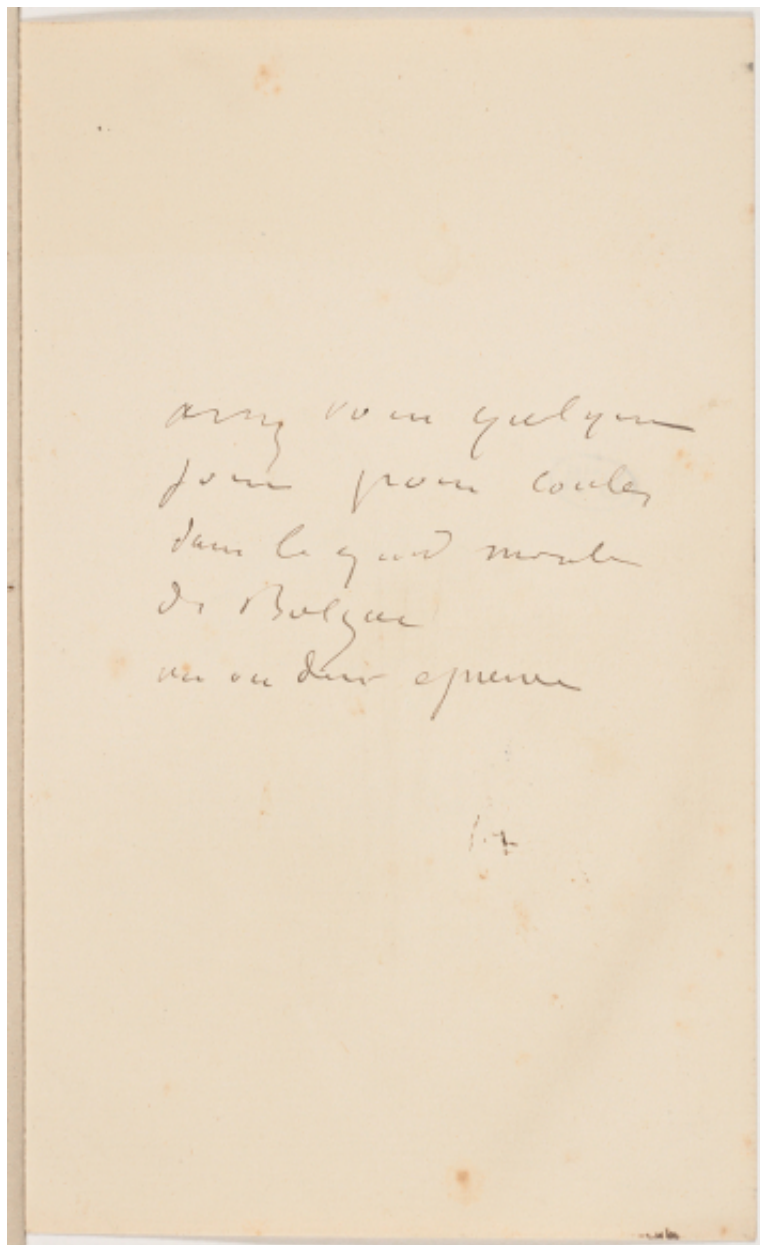 avez vous quelques
jours pour couler
dans le grand moule
de Balzac
un ou deux epreuves